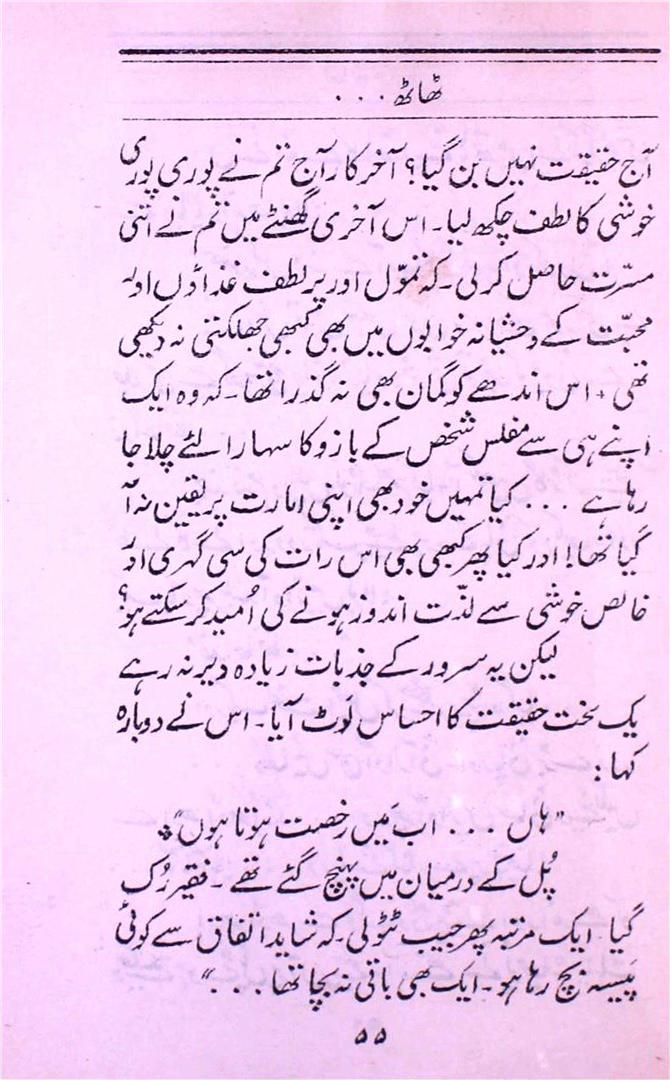 ٹھاٹھ . . .
آج حقیقت نہیں بن گیا؟ آخر کار آج تم نے پوری پوری
خوشی کا لطف چکھ لیا۔ اس آخری گھنٹے میں تم نے اتنی
مسرّت حاصل کر لی۔ کہ تموّل اور پر لطف غذاؤں اور
محبّت کے وحشیانہ خوابوں میں بھی کبھی جھلکتی نہ دیکھی
تھی۔ اس اندھے کو گمان بھی نہ گذرا تھا۔ کہ وہ ایک
اپنے ہی سے مفلس شخص کے بازو کا سہارا لئے چلا جا
رہا ہے . . . کیا تمہیں خود بھی اپنی امارت پر یقین نہ آ
گیا تھا! اور کیا پھر کبھی بھی اس رات کی سی گہری اور
خالص خوشی سے لذّت اندوز ہونے کی اُمید کر سکتے ہو؟
لیکن یہ سرور کے جذبات زیادہ دیر نہ رہے
یک لخت حقیقت کا احساس لوٹ آیا۔ اس نے دوبارہ
کہا:
"ہاں . . . اب مَیں رخصت ہوتا ہوں"۔
پُل کے درمیان میں پہنچ گئے تھے۔ فقیر رُک
گیا۔ ایک مرتبہ پھر جیب ٹٹولی۔ کہ شاید اتفاق سے کوئی
پَیسہ بچ رہا ہو۔ ایک بھی باقی نہ بچا تھا . . ."
۵۵